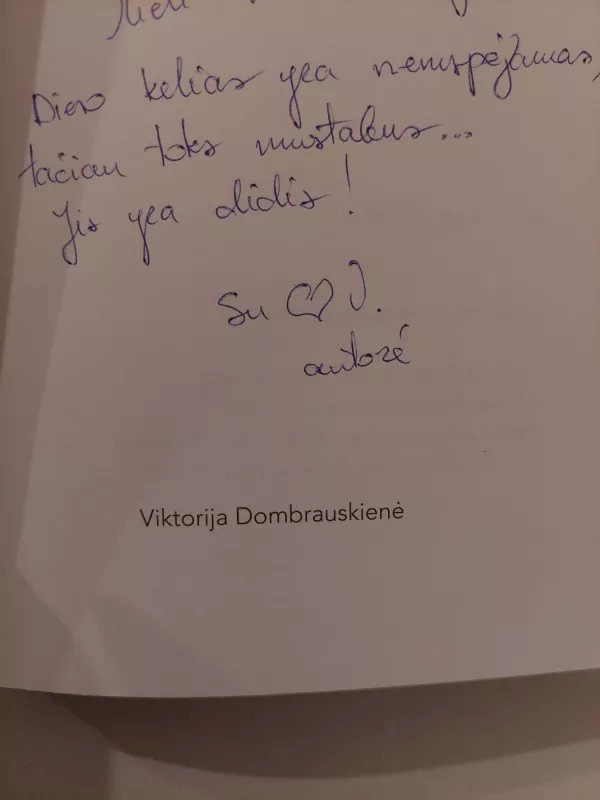 Dievo kelias yra nenuspėjamas,
tačiau toks nuostabus...
Jis yra didis!
Su ♡ V.
autorė
Viktorija Dombrauskienė